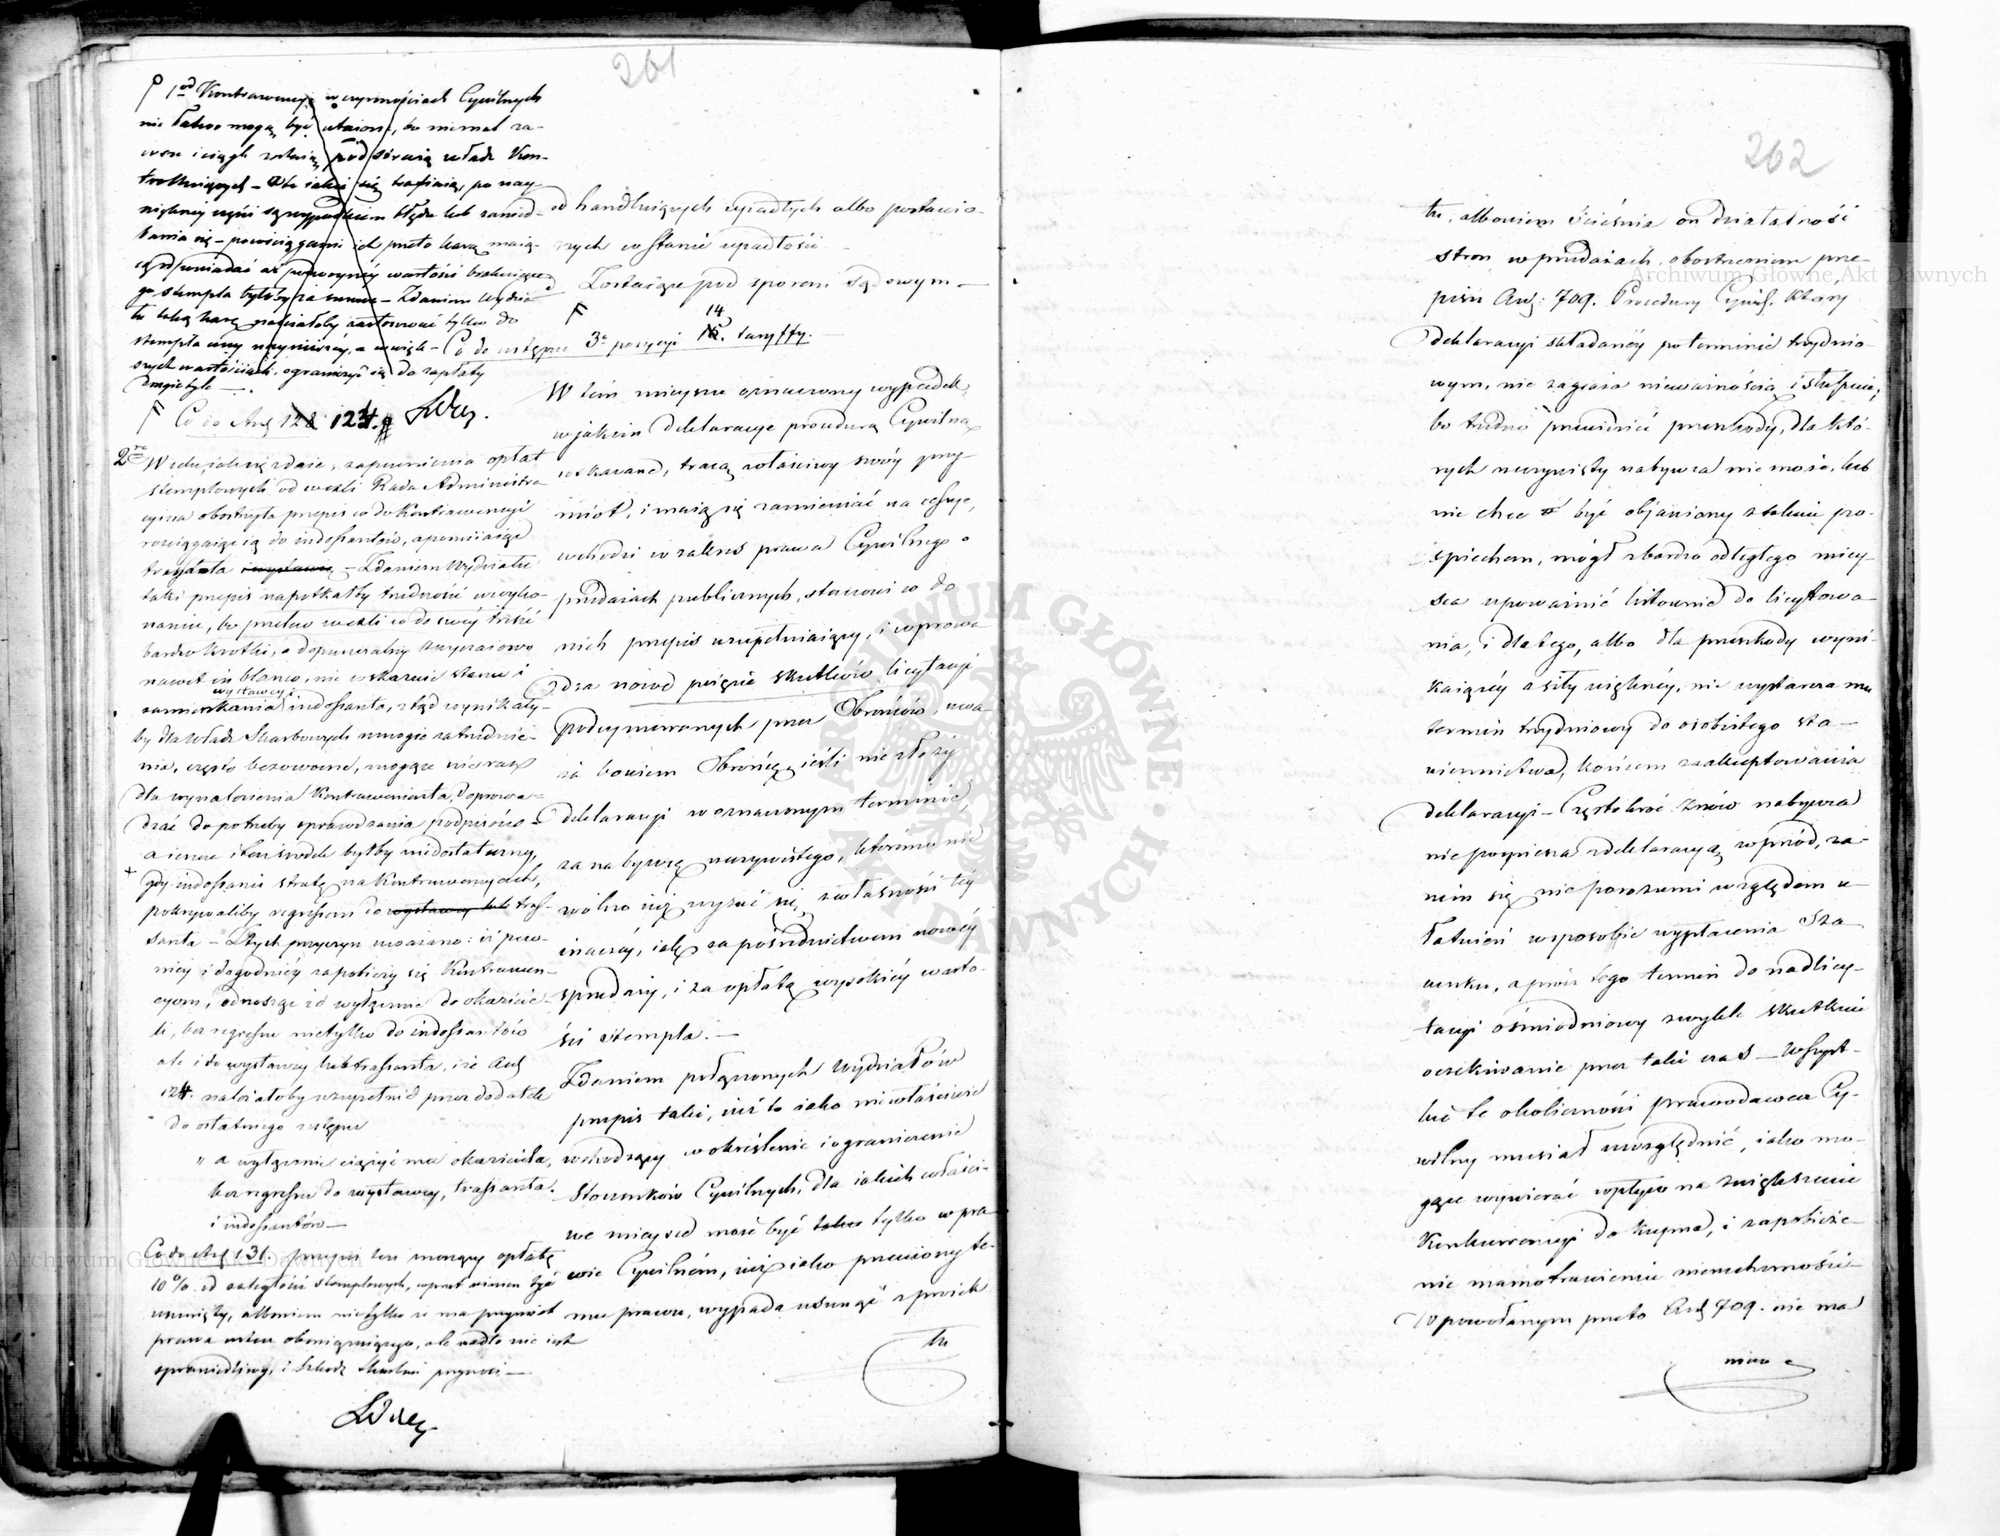 261
1od Kontrawencye w czynnościach Cywilnych
nie łatwo mogą być utaione, bo niemal za-
wsze i ciągle zostaią pod strażą władz Kon-
troluiących – Gdy iakie się trafiaią, po nay-
większey części są wypadkiem błędu lub zanied-
bania się – powściąganie ich przeto karą maią-
cą odpowiadać aż podwoyney wartości brakuiące-
go stempla byłoby za surowe – Zdaniem Wydzia-
łu taką karę należałoby zastosować tylko do
stempla ceny naymnieyszey, a w więk-
szych wartościach ograniczyć się do zapłaty
drugie tyle –
Co do Art 124.
2re W celu iak się zdaie, zapewnienia opłat
stemplowych od wexli Rada Administra
cyina obostrzyła przepis co do Kontrawencyi
rozciągaiąc ią do indossantów, a pomiiaiąc
trassanta – Zdaniem Wydziału
taki przepis napotkałby trudność w wyko-
naniu, bo prawo wexli co do swey treści
bardzo krótki, a dopuszczalny zwyczaiowo
nawet in blanco, nie wskazuie stanu i
wystawcy i
zamieszkania indossanta, ztąd wynikały-
by dla Władz Skarbowych mnogie zatrudnie-
nia, często bezowocne, mogące nieraz
dla wynalezienia Kontrawenianta, doprowa-
dzać do potrzeby sprawdzania podpisów –
a ieszcze i ten środek byłby niedostateczny,
gdy indossanci stratę na Kontrawencyach,
pokrywaliby regressem do tras-
santa – Z tych przyczyn uważano: iż pew-
niey i dogodniey zapobieży się Kontrawen-
cyom, odnosząc ie wyłącznie do okazicie-
la, bez regressu nietylko do indossantów
ale i do wystawcy lub trassanta, i że Art
124. należałoby uzupełnić przez dodatek
do ostatniego ustępu
" a wyłącznie ciążyć ma okaziciela,
bez regressu do wystawcy, trassanta
i indossantów –
Co do Art 131. przepis ten znoszący opłatę
10% od zaległości stemplowych, winien być
usunięty, albowiem nietylko że ma przymiot
prawa wstecz obowiązuiącego, ale nadto nie iest
sprawiedliwy, i szkodę Skarbowi przynosi –
od handluiących upadłych albo postawio-
nych w stanie upadłości –
Zostaiące pod sporem sądowym –
14
Co do ustępu 3o pozycyi 15. taryffy.
W tém mieyscu oznaczony wypadek,
w jakim Deklaracye procedurą Cywilną
wskazane, tracą właściwy swóy przy
miot, i maią się zamieniać na cessye,
wchodzi w zakres prawa Cywilnego o
przedażach publicznych, stanowi co do
nich przepis uzupełniaiący, i wprowa
dza nowe poięcie skutków licytacyi
podeymowanych przez Obrońców, uwa
ża bowiem Obrońcę ieśli nie złoży
deklaracyi w oznaczonym terminie,
za nabywcę rzeczywistego, któremu nie
wolno iuż wyzuć się z własności tey
inaczéy, iak za pośrednictwem nowéy
sprzedaży, i za opłatą wysokiéy warto-
ści stempla. –
Zdaniem połączonych Wydziałów
przepis taki, iuż to iako niewłaściwie
wchodzący w określenie i ograniczenie
stosunków Cywilnych, dla iakich właści-
we mieysce może być tylko w pra
wie Cywilném, iuż iako przeciwny te-
mu prawu, wypada usunąć z proiek
tu
262
tu, albowiem ścieśnia on działalność
stron w przedażach, obostrzeniem prze-
pisu Art: 709. Procedury Cywil. który
deklaracyi składanéy po terminie trzydnio-
wym, nie zagraża nieważnością i słusznie;
bo trudno przewidzieć przeszkody, dla któ-
rych rzeczywisty nabywca nie może, lub
nie chce być objawiony z takim po-
spiechem, mógł z bardzo odległego miey-
sca upoważnić listownie do licytowa-
nia, i dlatego, albo dla przeszkody wyni-
kaiącéy z siły większéy, nie wystarcza mu
termin trzydniowy do osobistego sta-
wiennictwa, końcem zaakceptowania
deklaracyi – Częstokroć znów nabywca
nie pospiesza z deklaracyą wprzód, za-
nim się nie porozumi względem u-
łatwień w sposobie wypłacenia sza-
cunku, a prócz tego termin do nadlicy-
tacyi ośmiodniowy zwykle skutkuie
oczekiwanie przez taki czas – Wszyst-
kie te okoliczności prawodawca Cy-
wilny musiał uwzględnić, iako mo-
gące wywierać wpływ na zwiększenie
Konkurencyi do kupna, i zapobieże-
nie marnotrawieniu nieruchomości –
W powołanym przeto Art 709. nie ma
mowa
Archiwum Główne Akt Dawnych
Archiwum Główne Akt Dawnych
ARCHIWUM GŁÓWNE AKT DAWNYCH